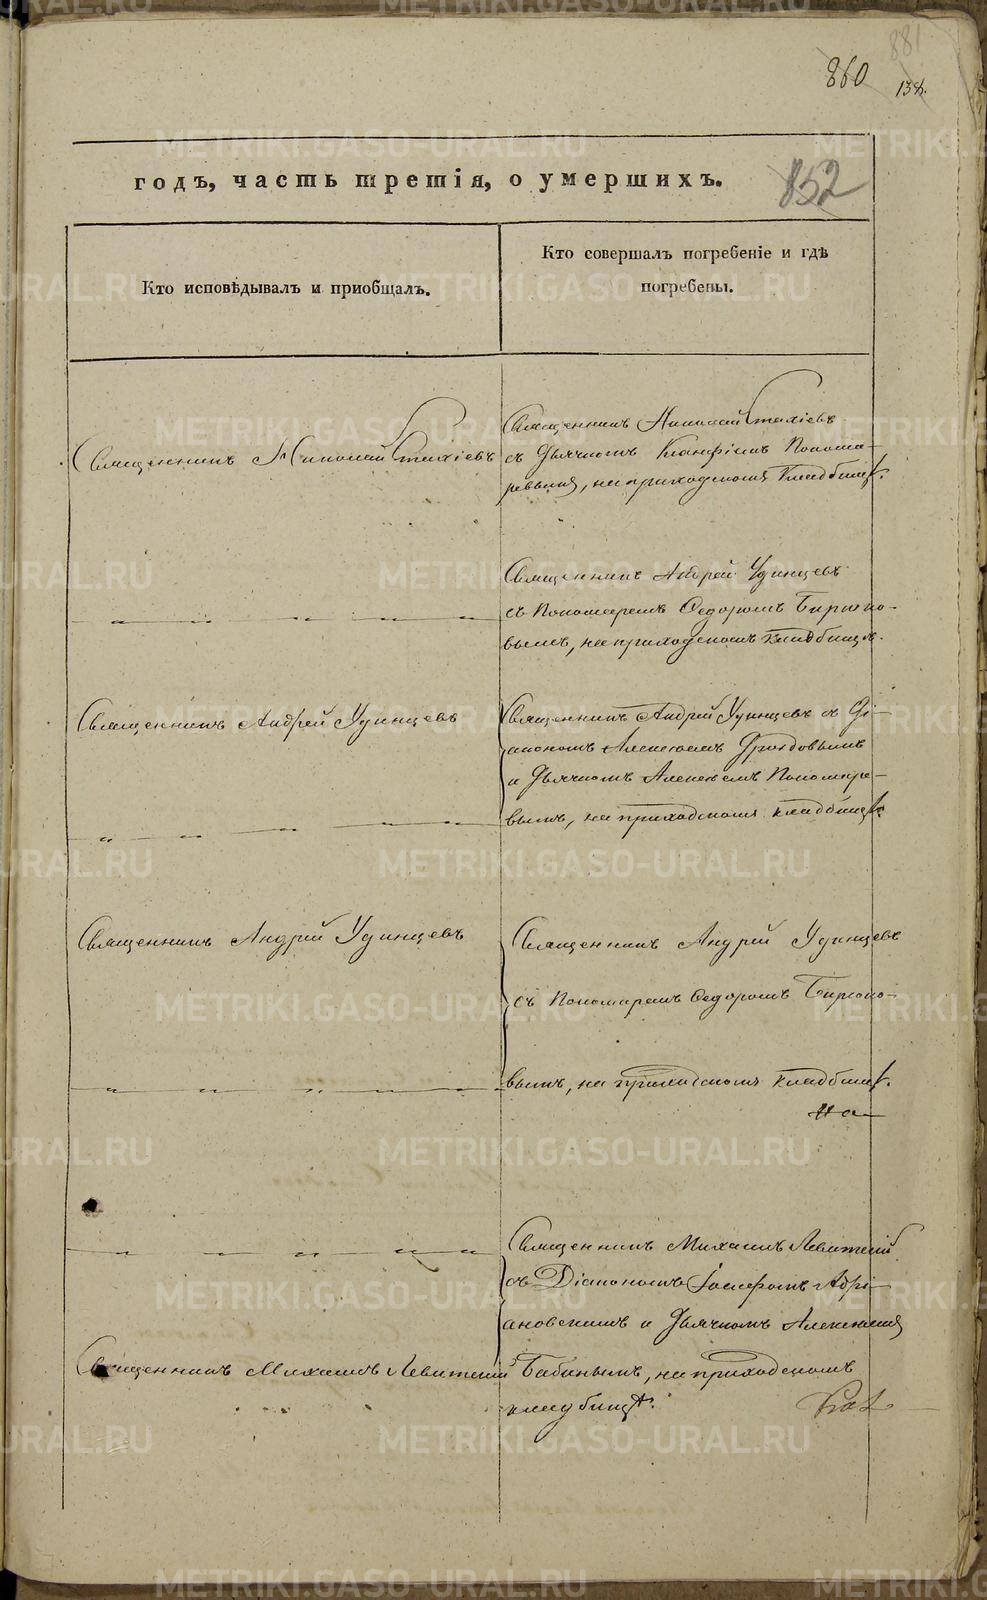 881
860
138.
годъ, часть третія, о умершихъ.
852
Кто исповѣдывалъ и приобщалъ.
Кто совершалъ погребеніе и гдѣ
погребены.
Священникъ Николай Стахіевъ
Священникъ Николай Стахіевъ
съ Дьячкомъ Пономa-
ревымъ, на приходскомъ кладбищѣ.
Священникъ Андрей Удинцевъ
съ Пономаремъ Ѳедоромъ Бирюко-
вымъ, на приходскомъ кладбищѣ.
Священникъ Андрей Удинцевъ
Священникъ Андрей Удинцевъ съ Ді-
акономъ Алексѣемъ Дроздовымъ
и Дьячкомъ Алексѣемъ Пономаре-
вымъ, на приходскомъ кладбищѣ.
Священникъ Андрей Удинцевъ
Священникъ Андрей Удинцевъ
съ Пономаремъ Ѳедоромъ Бирюко-
вымъ, на приходскомъ кладбищѣ.
На
Священникъ Михаилъ Левитскій
съ Діакономъ Іосифомъ Адрі-
ановскимъ и Дьячкомъ Алексѣемъ
Священникъ Михаилъ Левитскій
Бабинымъ, на приходскомъ
кладбищѣ.
METRIKI.GASO-URAL.RU